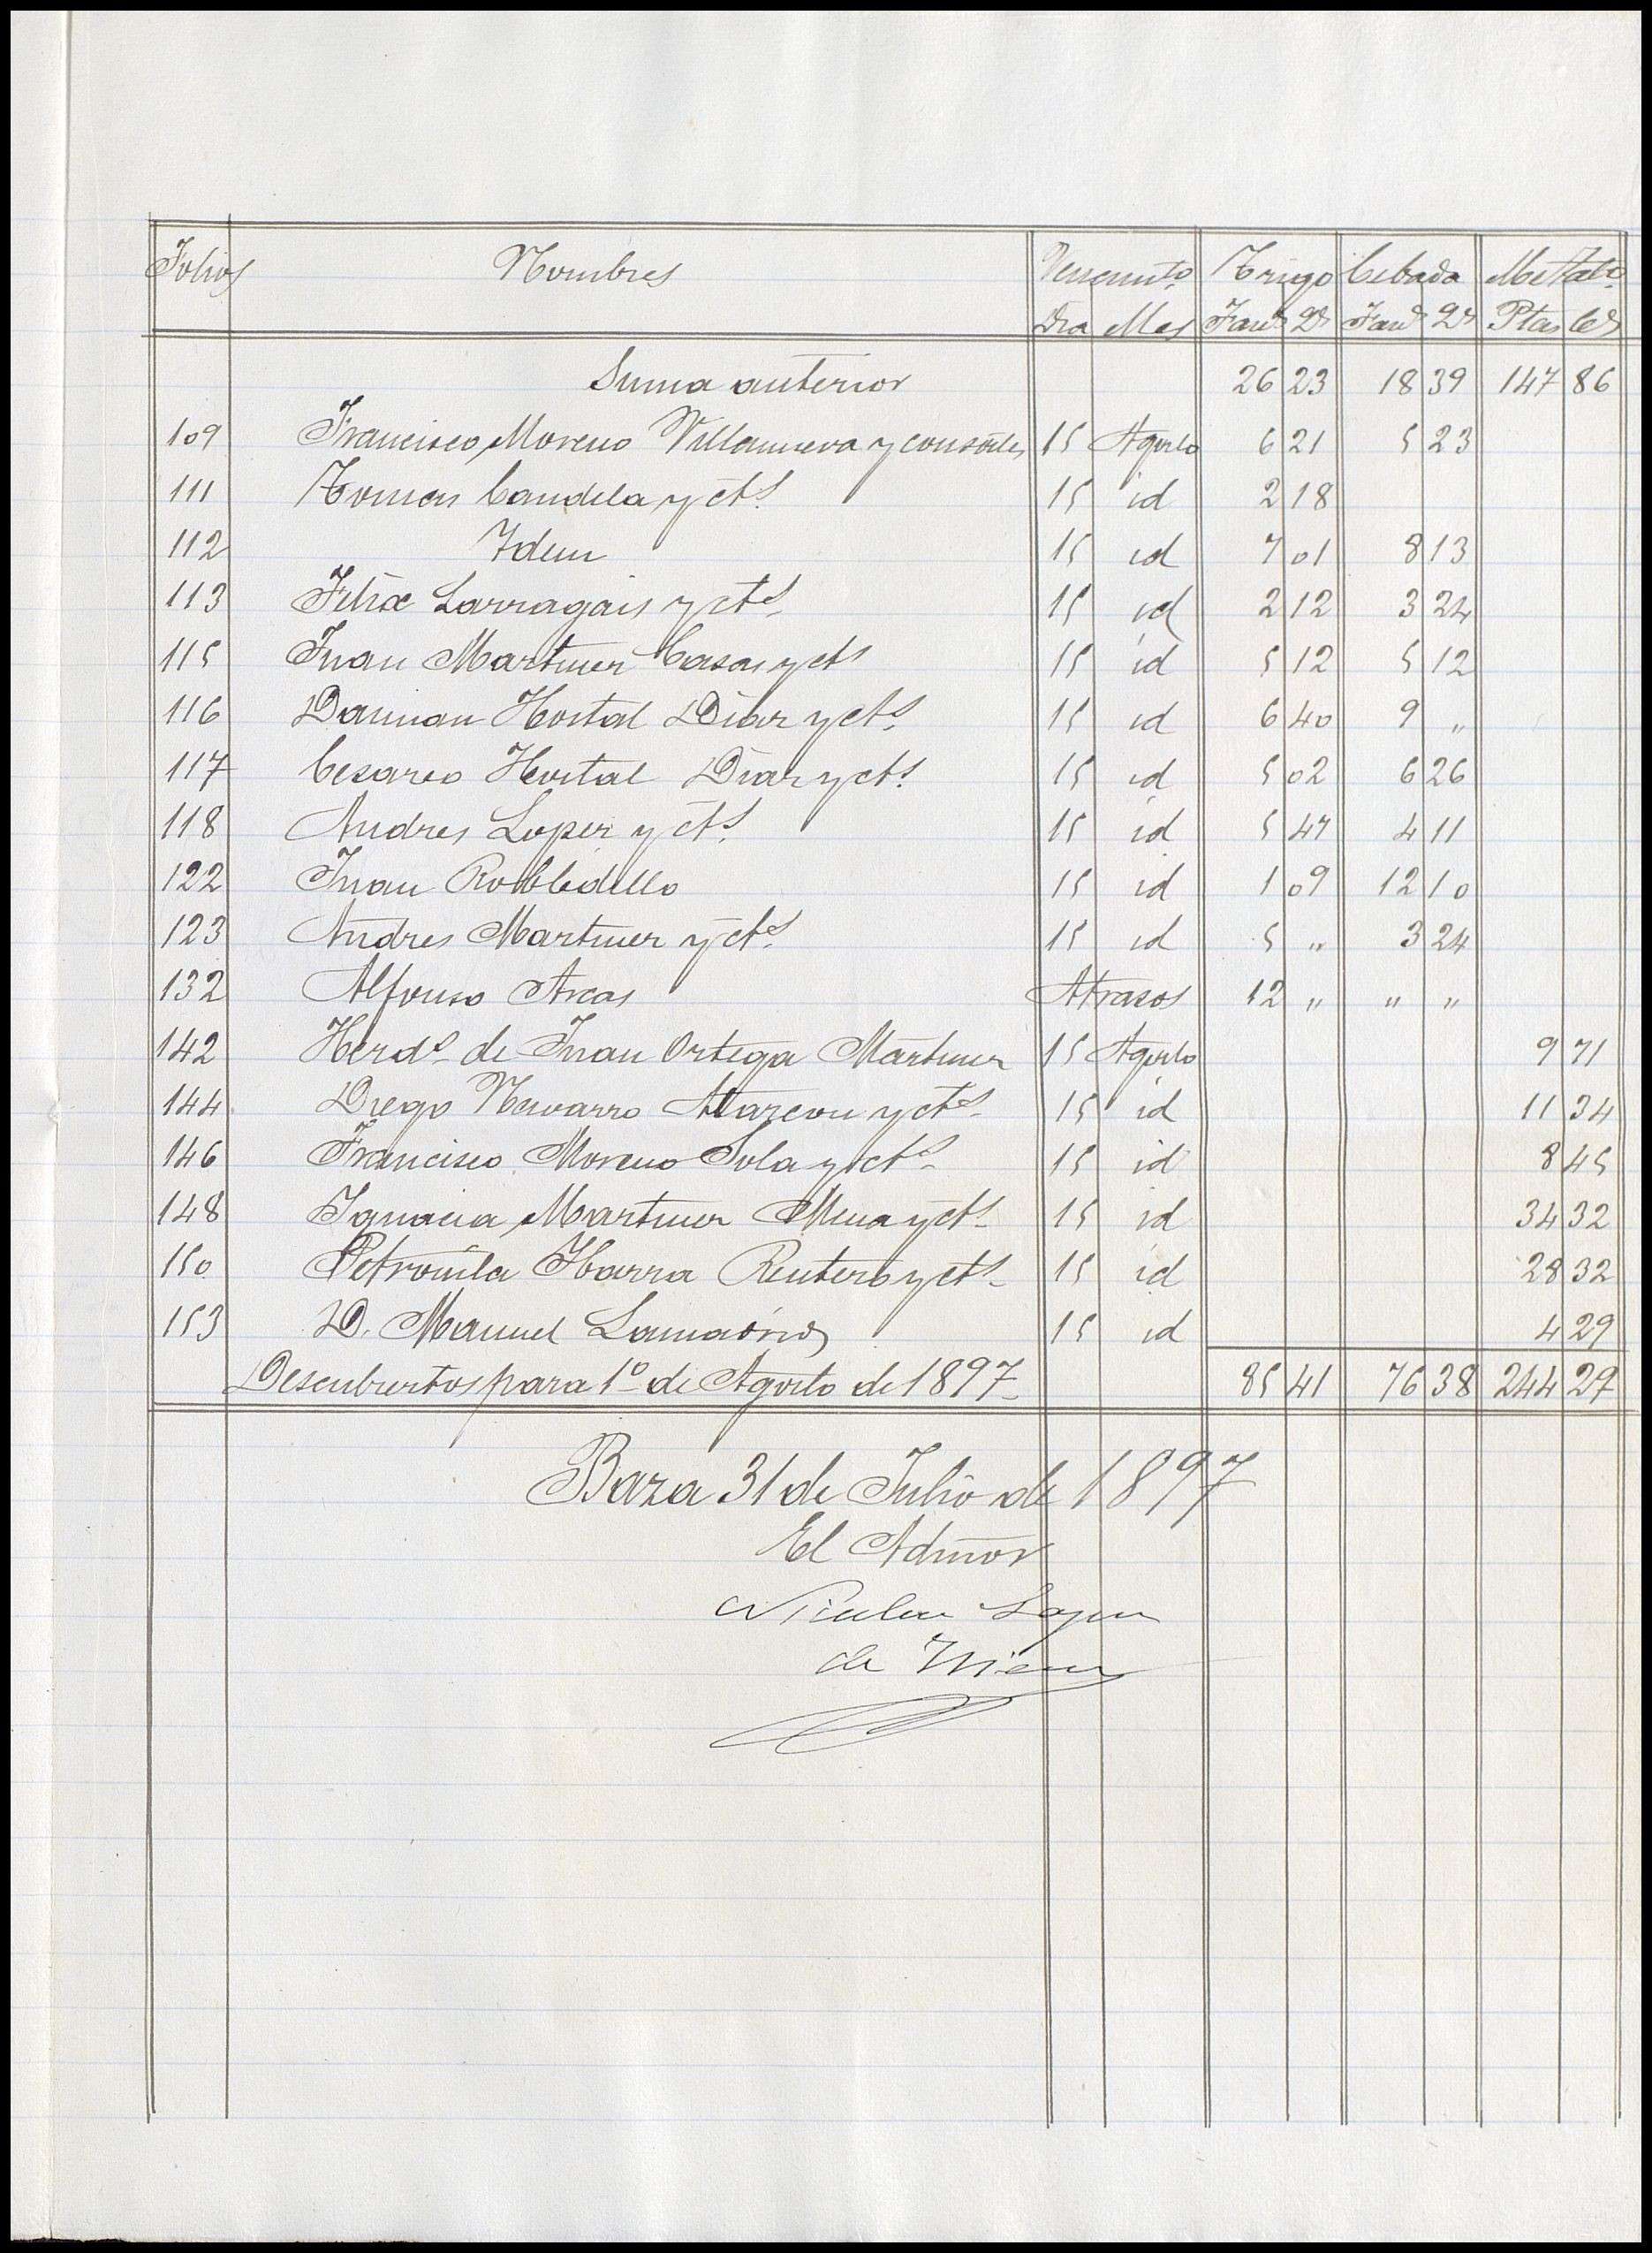 Folios Nombres Vencimto. Trigo Cebada Metalco.
Dia Mes Fans Qs Fans Qs Ptas Cs
Suma anterior 26 23 18 39 147 86
109 Francisco Moreno Villanueva y consortes 15 Agosto 6 21 5 23
111 Tomas Candela y cts. 15 id 2 18
112 Idem 15 id 7 01 8 13
113 Felix Larragais y cts. 15 id 2 12 3 24
115 Juan Martinez Casas y cts 15 id 5 12 5 12
116 Damian Hortal Diaz y cts. 15 id 6 40 9 "
117 Cesareo Hortal Diaz y cts. 15 id 5 02 6 26
118 Andres Lopez y cts. 15 id 5 47 4 11
122 Juan Robledillo 15 id 1 09 12 10
123 Andres Martinez y cts. 15 id 5 " 3 24
132 Alfonso Arcas Atrasos 12 " " "
142 Herds. de Juan Ortega Martinez 15 Agosto 9 71
144 Diego Navarro Alarcon y cts. 15 id 11 34
146 Francisco Moreno Sola y cts. 15 id 8 45
148 Ignacia Martinez Mena y cts. 15 id 34 32
150 Petronila Ibarra Reutero y cts. 15 id 28 32
153 D. Manuel 15 id 4 29
Descubiertos para 1º de Agosto de 1897. 85 41 76 38 244 29
Baza 31 de Julio de 1897
El Admor
Nicolas Lopez
de